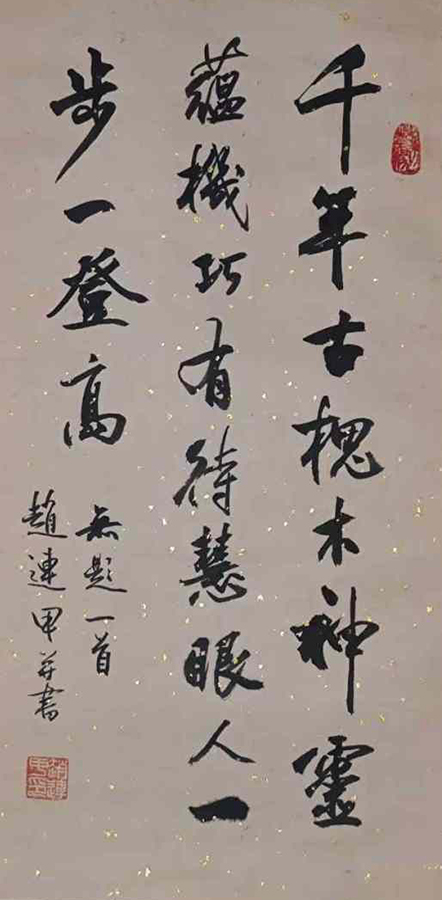 千年古槐木神靈
蘊機巧有待慧眼人一
步一登高
無題一首
趙連甲並書
趙連甲印